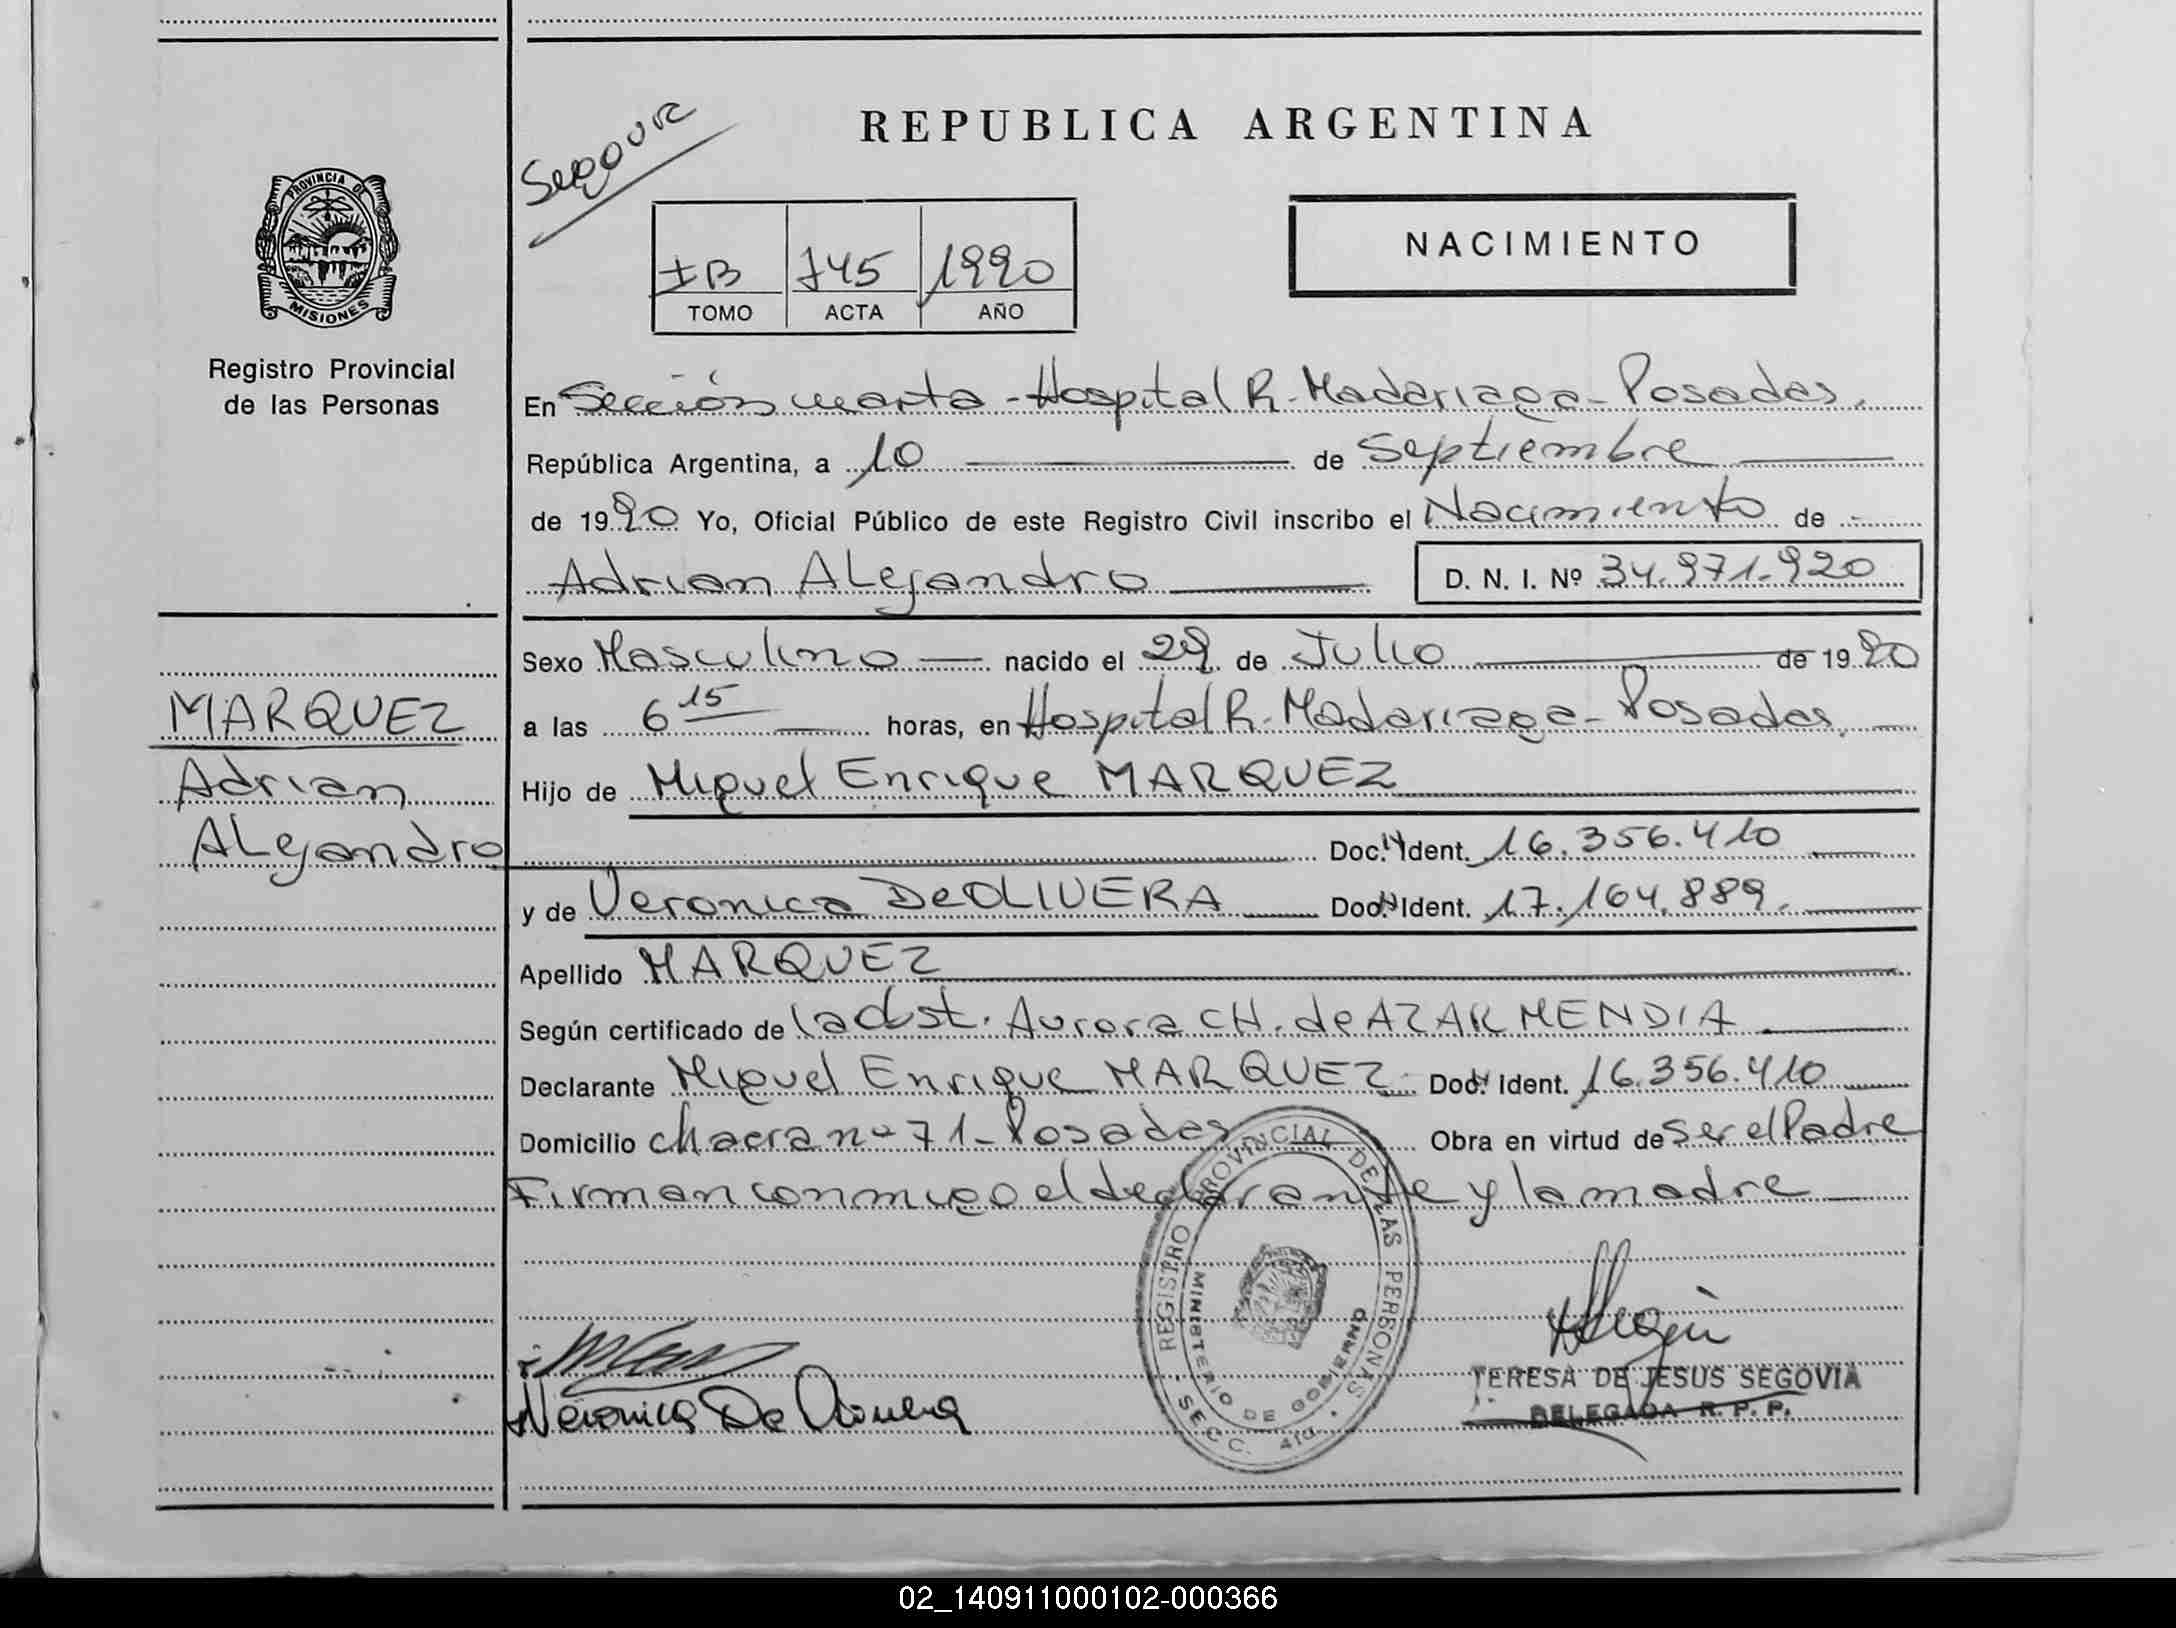 Segour
REPUBLICA ARGENTINA
PROVINCIA DE
MISIONES
Registro Provincial
de las Personas
NACIMIENTO
IB 745 1990
TOMO ACTA AÑO
En Sección cuarta - Hospital R. Madariaga - Posadas.
República Argentina, a 10 de Septiembre
de 1990 Yo, Oficial Público de este Registro Civil inscribo el Nacimiento de
Adrian Alejandro D. N. I. Nº 34.971.920
Sexo Masculino nacido el 29 de Julio de 1990
MARQUEZ
Adrian
Alejandro
a las 6 15 horas, en Hospital R. Madariaga - Posadas.
Hijo de Miguel Enrique MARQUEZ
Doc. Ident. 16.356.410
y de Veronica DeOLIVERA Doc. Ident. 17.164.889.
Apellido MARQUEZ
Según certificado de la obst. Aurora CH. de AZARMENDIA
Declarante Miguel Enrique MARQUEZ Doc. Ident. 16.356.410
Domicilio chacra nº 71 - Posadas Obra en virtud de ser el Padre
Firman conmigo el declarante y la madre
REGISTRO PROVINCIAL DE LAS PERSONAS
MINISTERIO DE GOBIERNO
SECC. 4ta.
Veronica De Olivera
TERESA DE JESUS SEGOVIA
DELEGADA R. P. P.
02_140911000102-000366